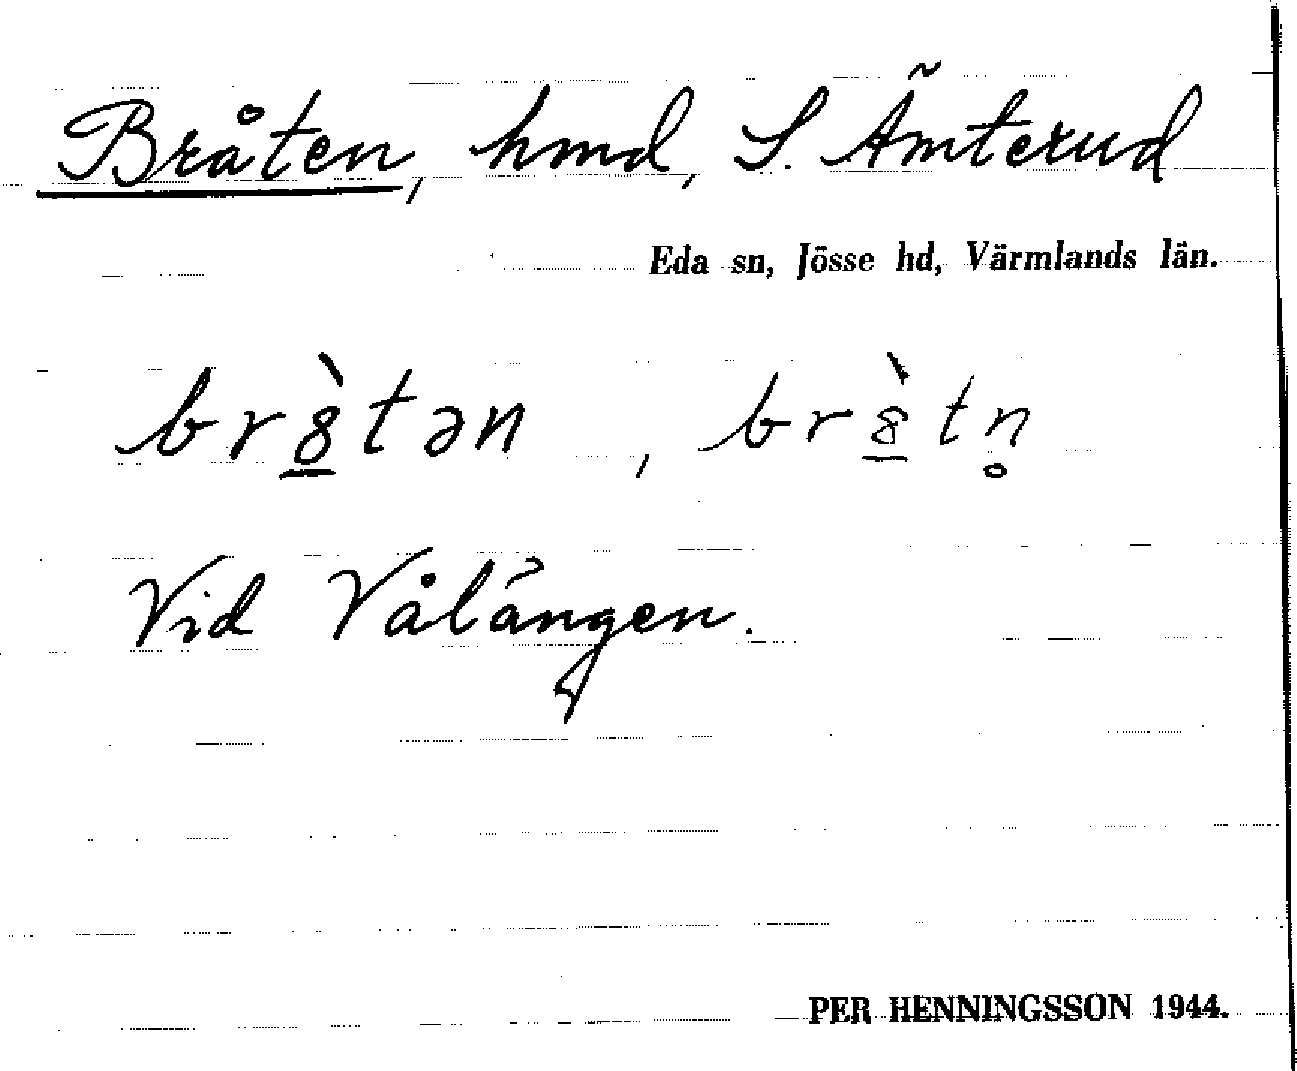 Bråten, hmd, S. Ämterud
Eda sn, Jösse hd, Värmlands län.
br8̲̀tən, br8̲̀tn̥
Vid Vålången.
PER HENNINGSSON 1944.